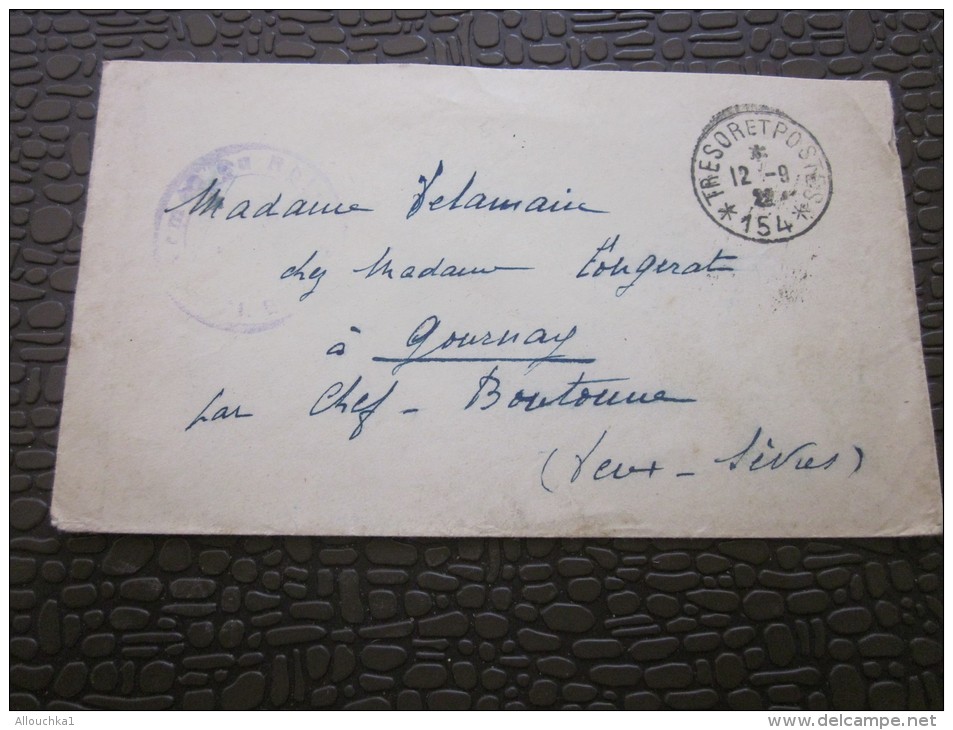 TRESOR ET POSTES
12 -9
22
* 154 *
Madame Delamaire
chez Madame Fougerat
à Gournay
par Chef - Boutonne
(Deux - Sèvres)
Allouchka1
www.delcampe.net